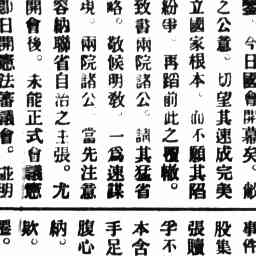 鑒。今日國會開幕矣。敝
之公意。切望其速成完美
立國家根本。而不願其陷
紛爭。再蹈前此之覆轍。
致書兩院諸公。請其猛省
略。敬候明敎。一爲速謀
現。兩院諸公。當先注意
容納聯省自治之主張。尤
開會後。未能正式會議應
卽日開應法審議會。証明
事件
股集
張贖
孚不
本含
手足
腹心
納。
歉。
遷。